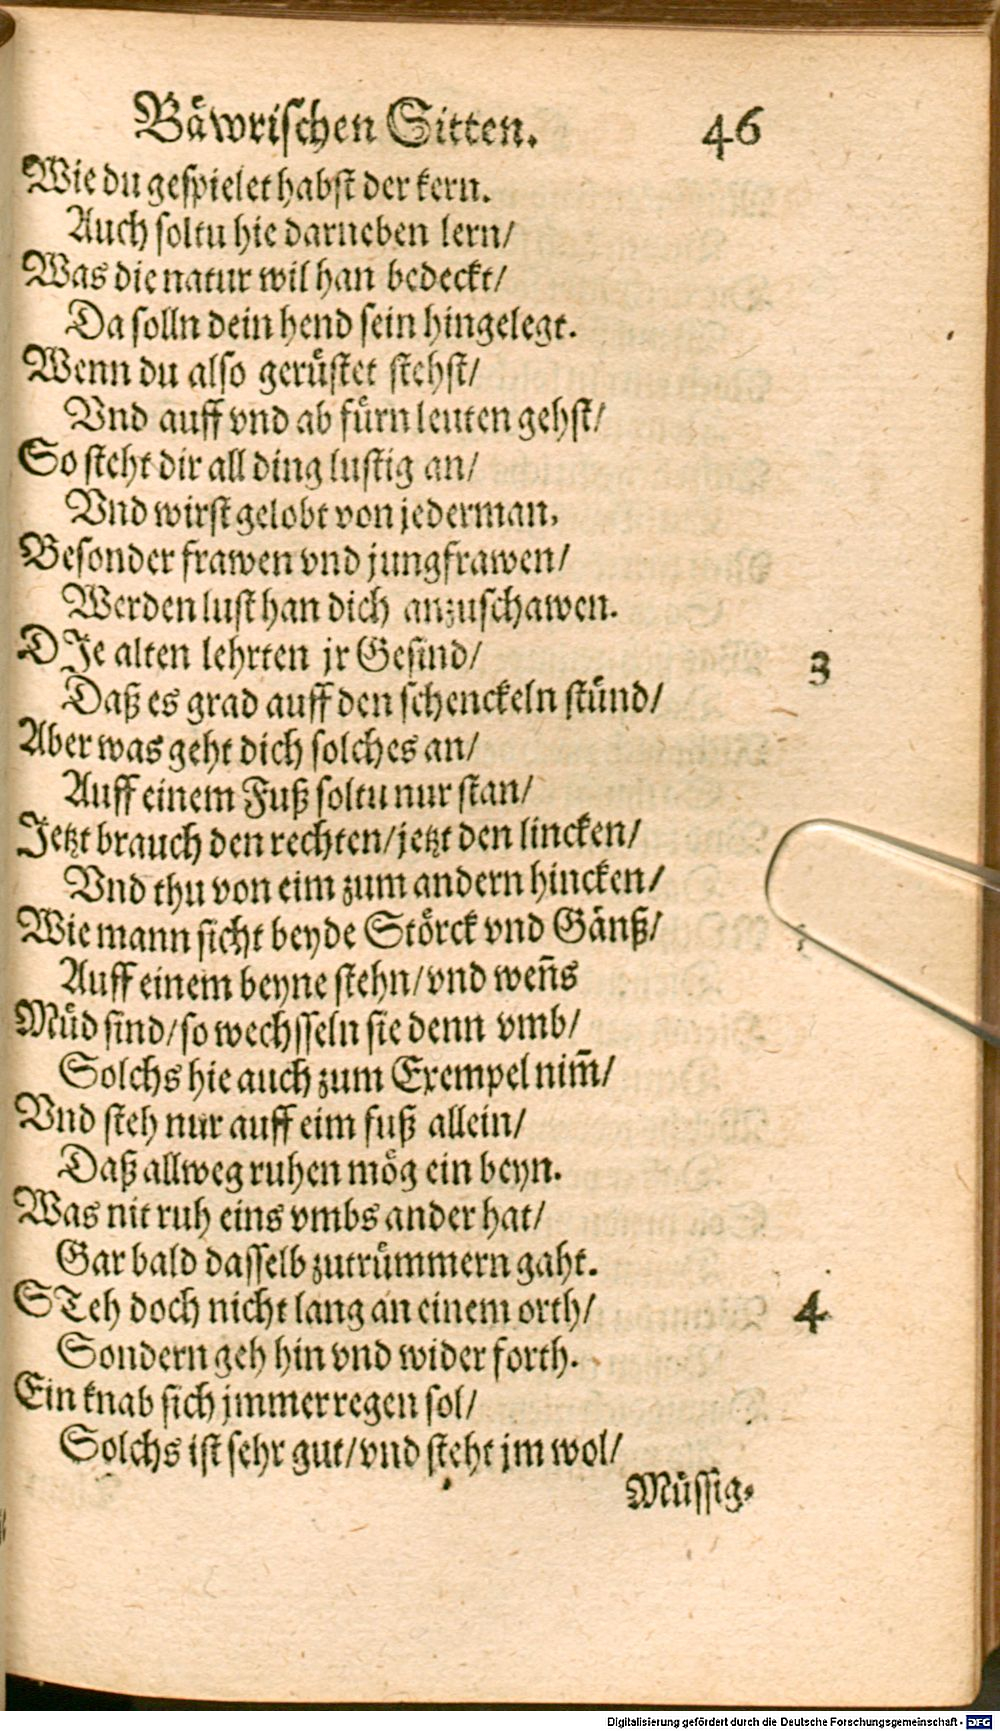 Bäwrischen Sitten. 46
Wie du gespielet habst der kern.
Auch soltu hie darneben lern/
Was die natur wil han bedeckt/
Da solln dein hend sein hingelegt.
Wenn du also gerüstet stehst/
Vnd auff vnd ab fürn leuten gehst/
So steht dir all ding lustig an/
Vnd wirst gelobt von jederman.
Besonder frawen vnd jungfrawen/
Werden lust han dich anzuschawen.
DJe alten lehrten jr Gesind/ 3
Daß es grad auff den schenckeln stünd/
Aber was geht dich solches an/
Auff einem Fuß soltu nur stan/
Jetzt brauch den rechten/jetzt den lincken/
Vnd thu von eim zum andern hincken/
Wie mann sicht beyde Störck vnd Gänß/
Auff einem beyne stehn/vnd wen̄s
Müd sind/so wechsseln sie denn vmb/
Solchs hie auch zum Exempel nim̄/
Vnd steh nur auff eim fuß allein/
Daß allweg ruhen mög ein beyn.
Was nit ruh eins vmbs ander hat/
Gar bald dasselb zutrümmern gaht.
STeh doch nicht lang an einem orth/ 4
Sondern geh hin vnd wider forth.
Ein knab sich jmmer regen sol/
Solchs ist sehr gut/vnd steht jm wol/
Müssig-
Digitalisierung gefördert durch die Deutsche Forschungsgemeinschaft - DFG